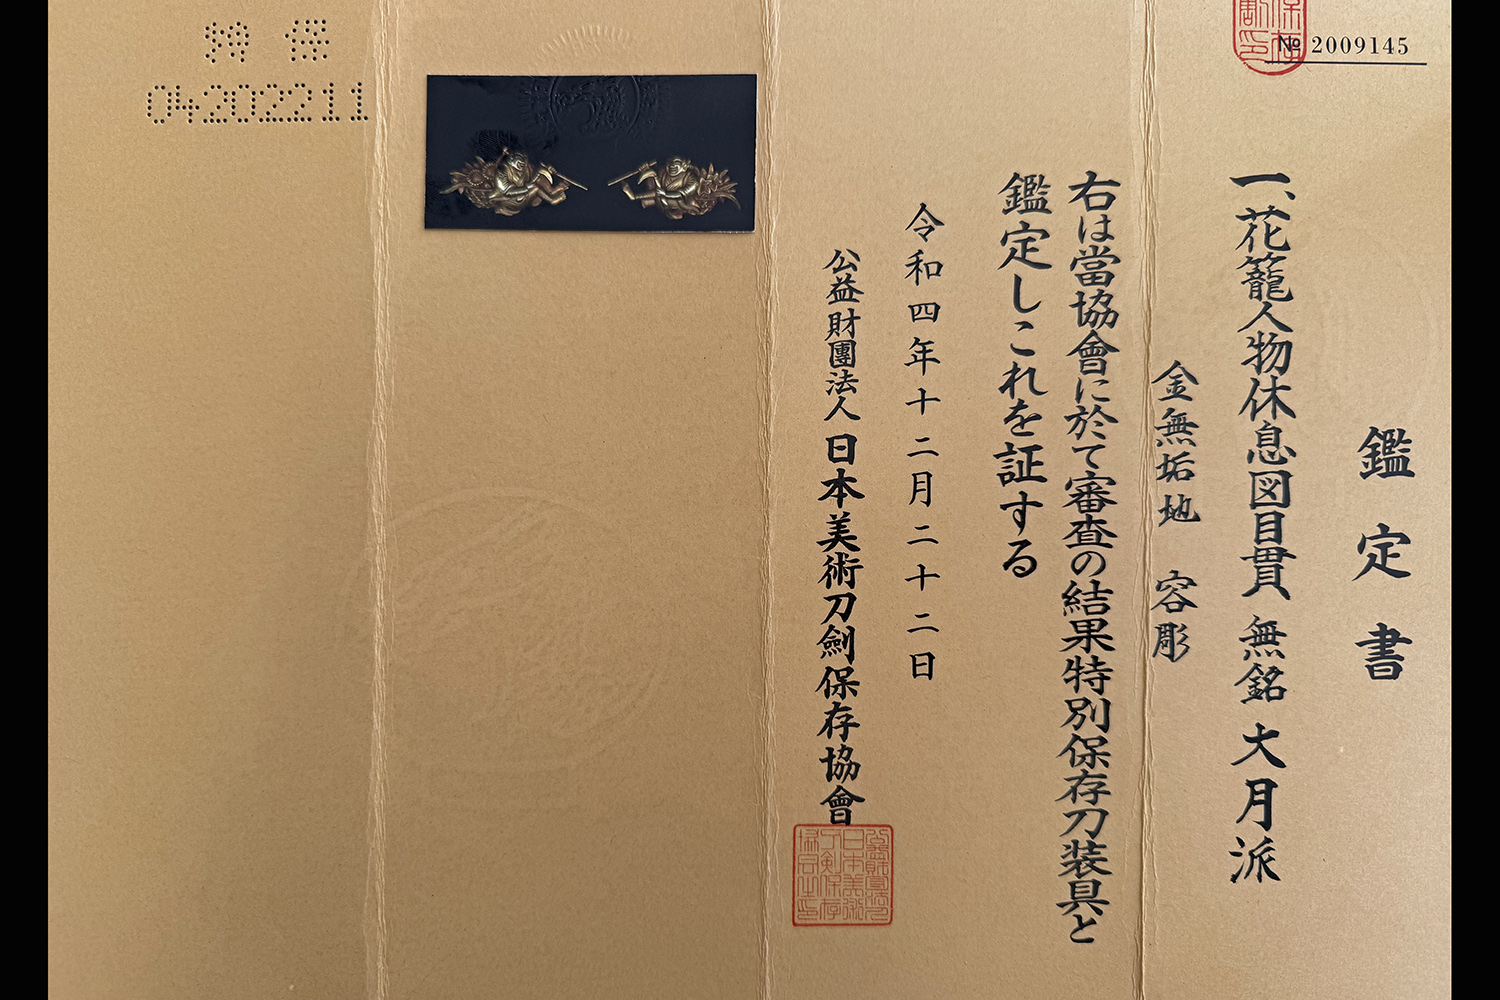 № 2009145
鑑定書
一、花籠人物休息図目貫 無銘 大月派
金無垢地 容彫
右は當協會に於て審査の結果特別保存刀装具と
鑑定しこれを証する
令和四年十二月二十二日
公益財團法人 日本美術刀劍保存協會
特 保
04202211